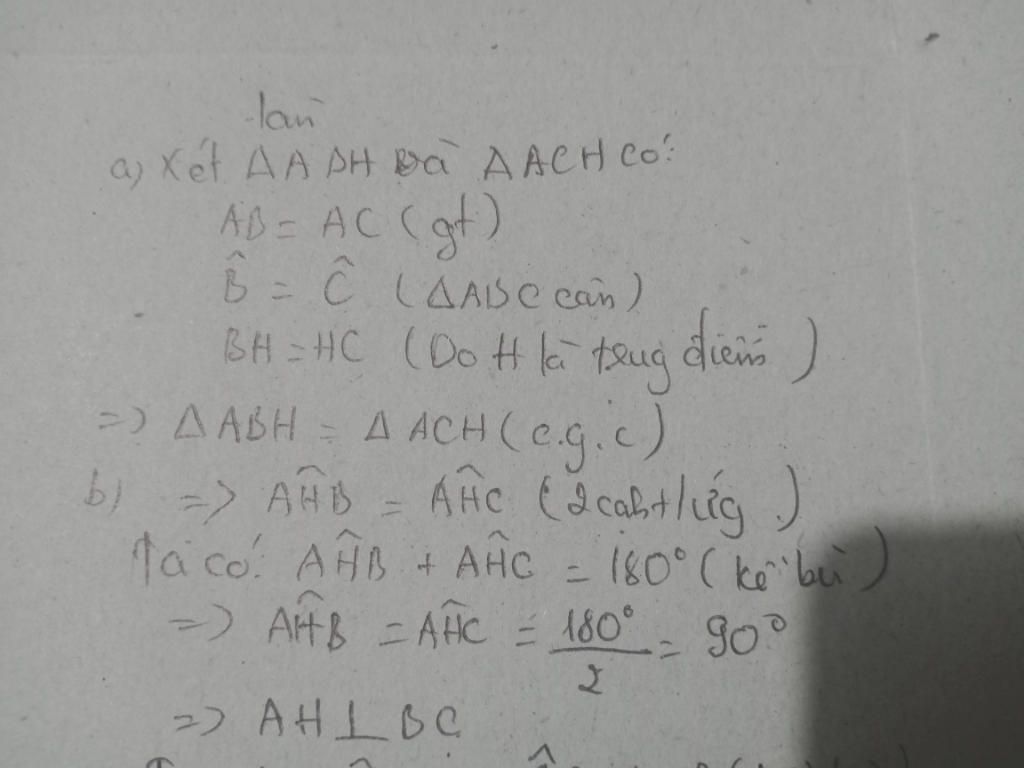 a) Xét ΔABH và ΔACH có:
AB = AC (gt)
B̂ = Ĉ (ΔABC cân)
BH = HC (Do H là trug điểm)
=> ΔABH = ΔACH (c.g.c)
b) => AĤB = AĤC (2 cạh t/ứg)
Ta có: AĤB + AĤC = 180° (kề bù)
=> AĤB = AĤC = 180°/2 = 90°
=> AH ⊥ BC